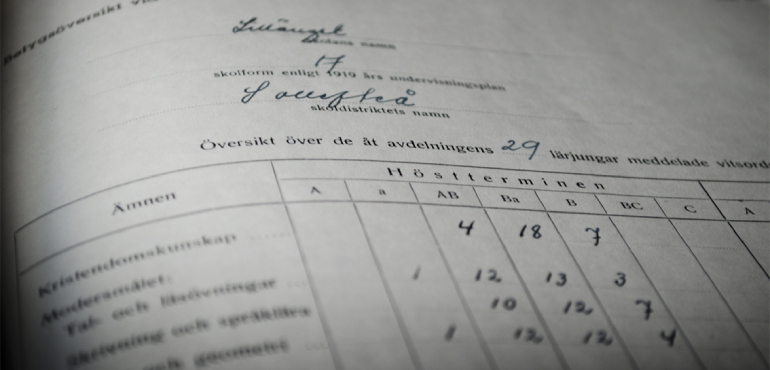 Betygsöversikt
Lillänget
skolans namn
17
skolform enligt 1919 års undervisningsplan
Sollefteå
skoldistriktets namn
Översikt över de åt avdelningens 29 lärjungar meddelade vitsord
Höstterminen
Ämnen A a AB Ba B BC C A
Kristendomskunskap 4 18 7
Modersmålet:
Tal- och läsövningar 1 12 13 3
skrivning och språklära 10 12 7
och geometri 1 12 12 4